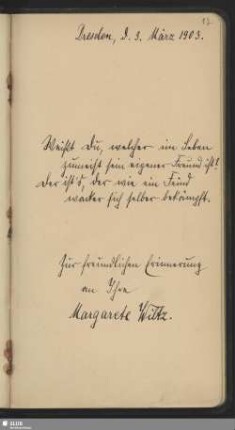 17.
Dresden, d. 3. März 1903.
Weißt Du, welcher im Leben
zumeist sein eigener Freund ist?
Der ist's, der wie ein Feind
wacker sich selber bekämpft.
Zur freundlichen Erinnerung
an Ihre
Margarete Wiltz.
SLUB